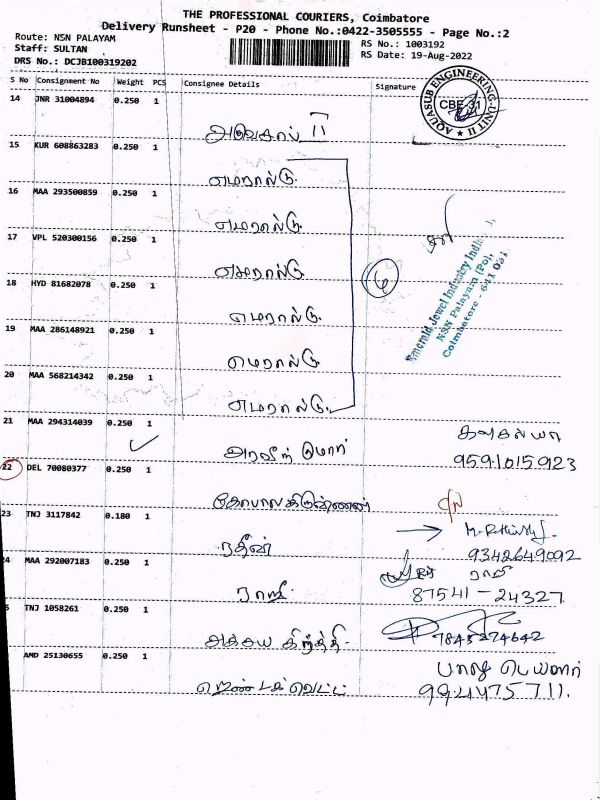 THE PROFESSIONAL COURIERS, Coimbatore
Delivery Runsheet - P20 - Phone No.:0422-3505555 - Page No.:2
Route: NSN PALAYAM
Staff: SULTAN
DRS No.: DCJB100319202
RS No.: 1003192
RS Date: 19-Aug-2022
S No Consignment No Weight PCS Consignee Details Signature
14 JNR 31004894 0.250 1
AQUASUB ENGINEERING-UNIT II
CBE-31
II
15 KUR 608863283 0.250 1
எமரால்டு.
16 MAA 293500859 0.250 1
எமரால்டு.
17 VPL 520300156 0.250 1
எமரால்டு
Emerald Jewel Industry India
NSN Palayam (Po),
Coimbatore - 641 031
6
18 HYD 81682078 0.250 1
எமரால்டு.
19 MAA 286148921 0.250 1
எமரால்டு
20 MAA 568214342 0.250 1
எமரால்டு.
21 MAA 294314039 0.250 1
9591015923
22 DEL 70080377 0.250 1
கோபாலகிருஷ்ணன்
23 TNJ 3117842 0.180 1
9342649092
24 MAA 292007183 0.250 1
87541-24327
TNJ 1058261 0.250 1
7845274642
AMD 25130655 0.250 1
994475711.